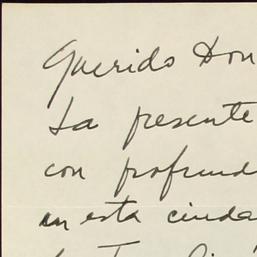 Querido Don
La presente
con profund
en esta ciuda